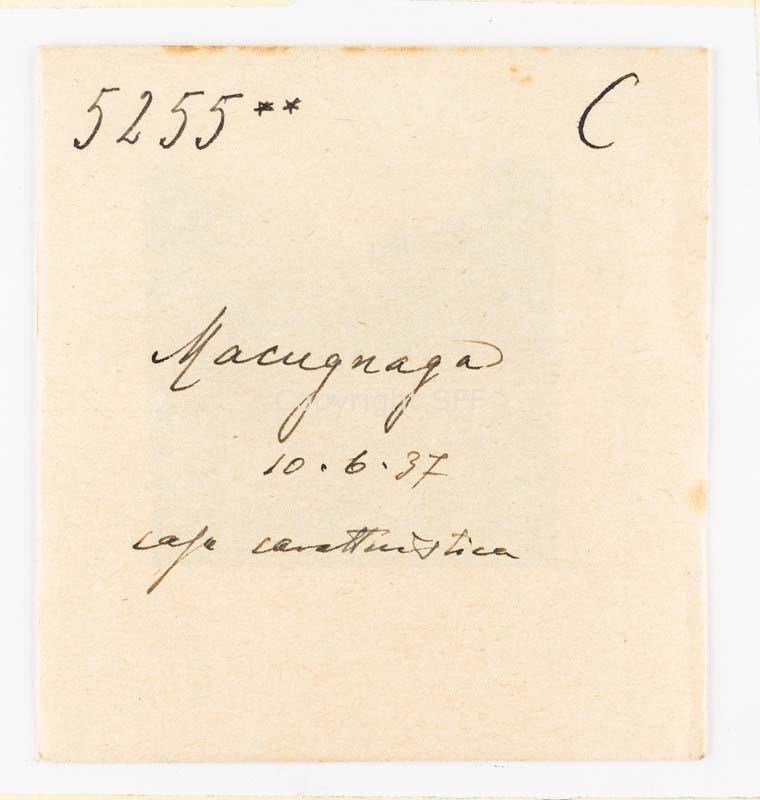 5255** C
Macugnaga
Copyright SPF
10.6.37
casa caratteristica